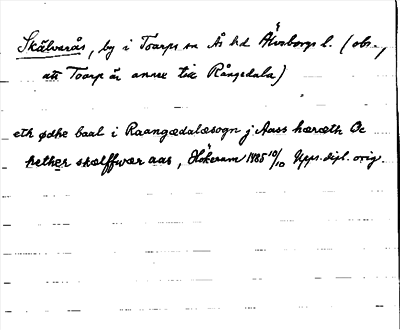 Skälvarås, by i Toarps sn Ås hd Älvsborgs l. (obs.,
att Toarp är annex till Rångedala)
eth ødhe baal i Raangædalæsogn j Aass hæræth Oc
hether skælffwær aas, Hökerum 1485 10/10 Upps. dipl. orig.